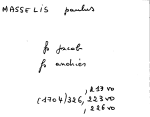 MASSELIS paulus
fs jacob
fs andries
, 219 vo
(1704) 326, 223 vo
, 226 vo